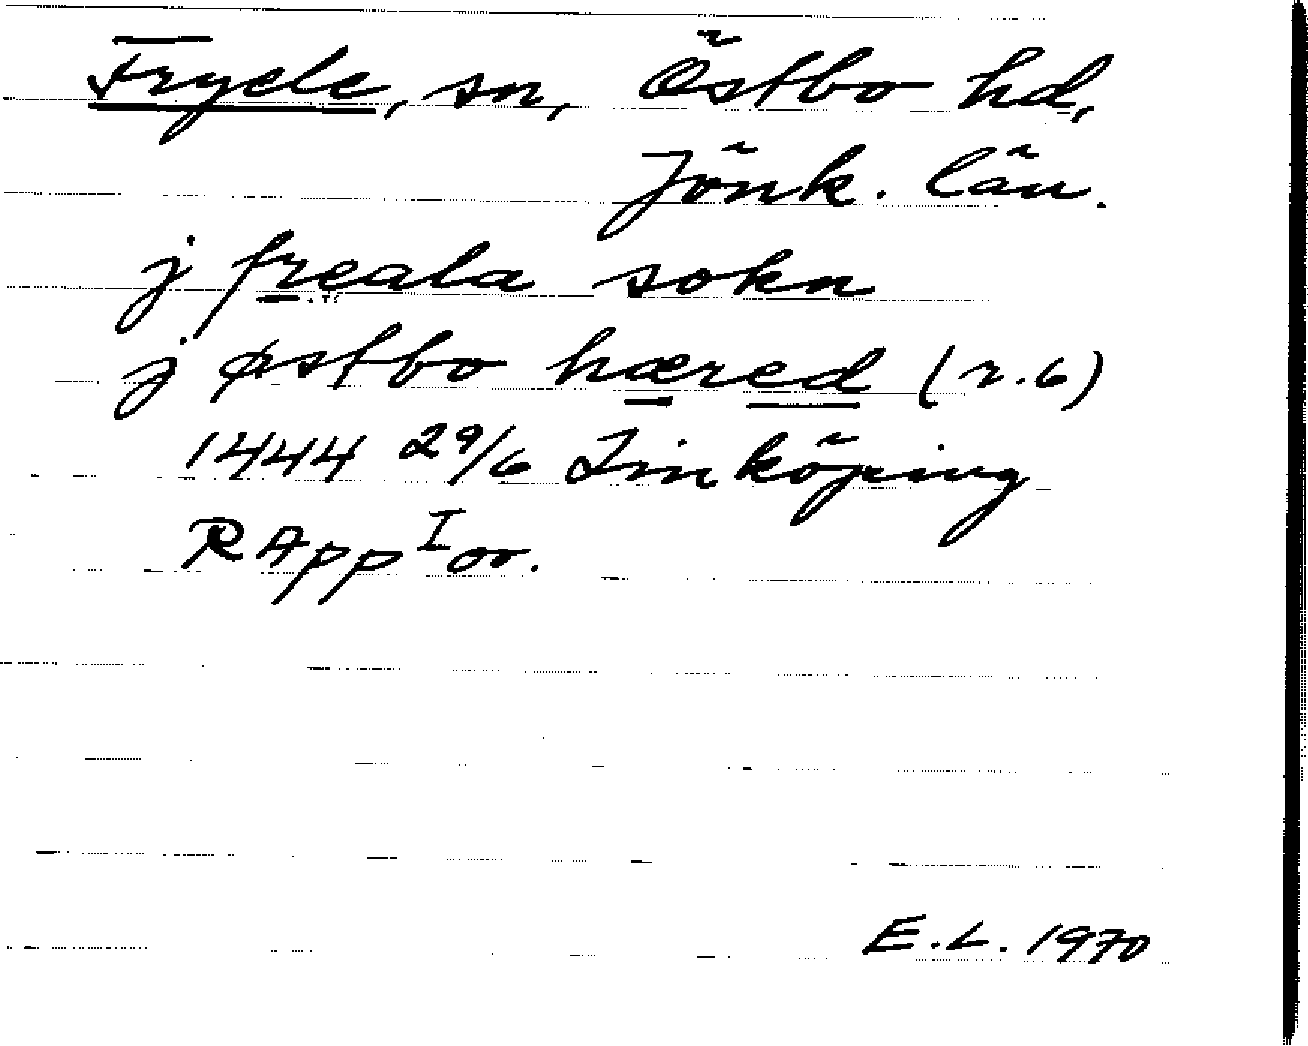 Fryele, sn, Östbo hd,
Jönk. län.
j freala sokn
j østbo hæred (r.6)
1444 29/6 Linköping
RAppI or.
E.L. 1970